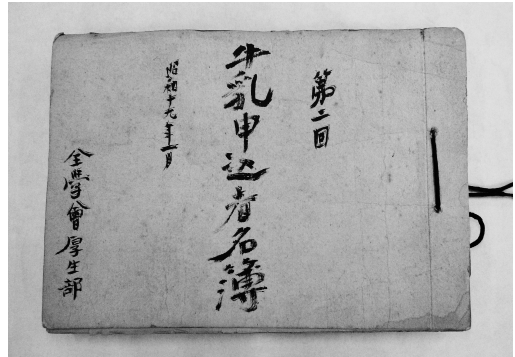 第二回
牛乳申込者名簿
昭和十九年一月
全學會厚生部